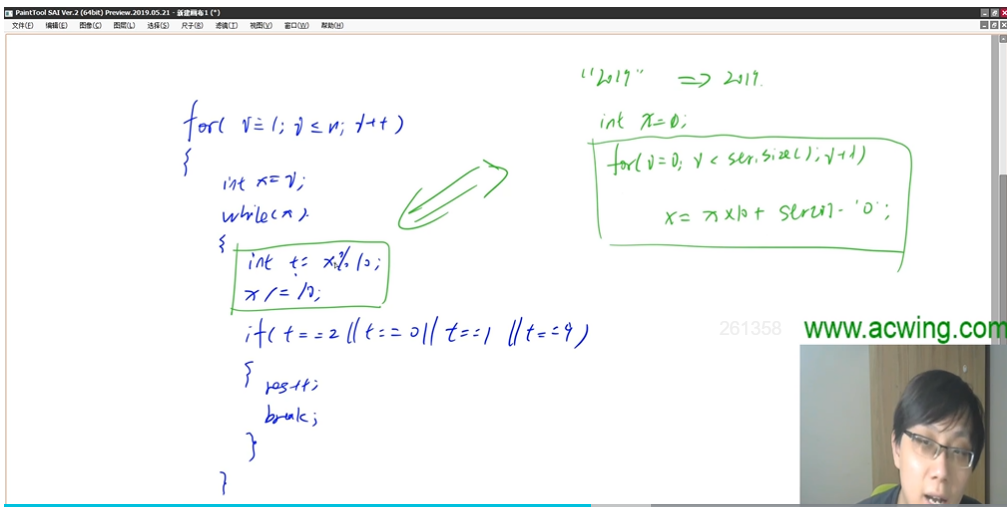 PaintTool SAI Ver.2 (64bit) Preview.2019.05.21 - 新建画布1 (*)
文件(F) 编辑(E) 图像(C) 图层(L) 选择(S) 尺子(R) 滤镜(T) 视图(V) 窗口(W) 帮助(H)
"2019" => 2019.
int x=0;
for(i=0; i < str.size(); i++)
x = x×10 + str[i] - '0';
for( i=1; i ≤ n; i++)
{
int x=i;
while(x)
{
int t= x%10;
x /= 10;
if( t==2 || t==0 || t==1 || t==9)
{
res++;
break;
}
}
261358
www.acwing.com